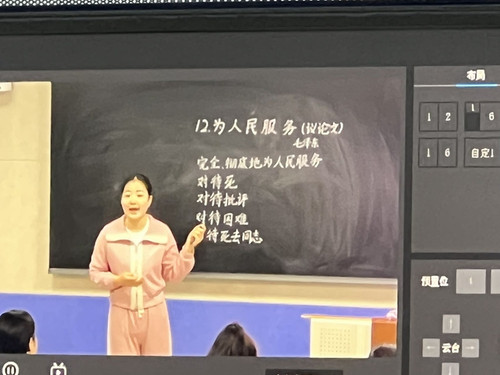 12.为人民服务(议论文)
毛泽东
完全、彻底地为人民服务
对待死
对待批评
对待困难
待死去同志
布局
1 2
1 6
1 6
自定
预置位
云台